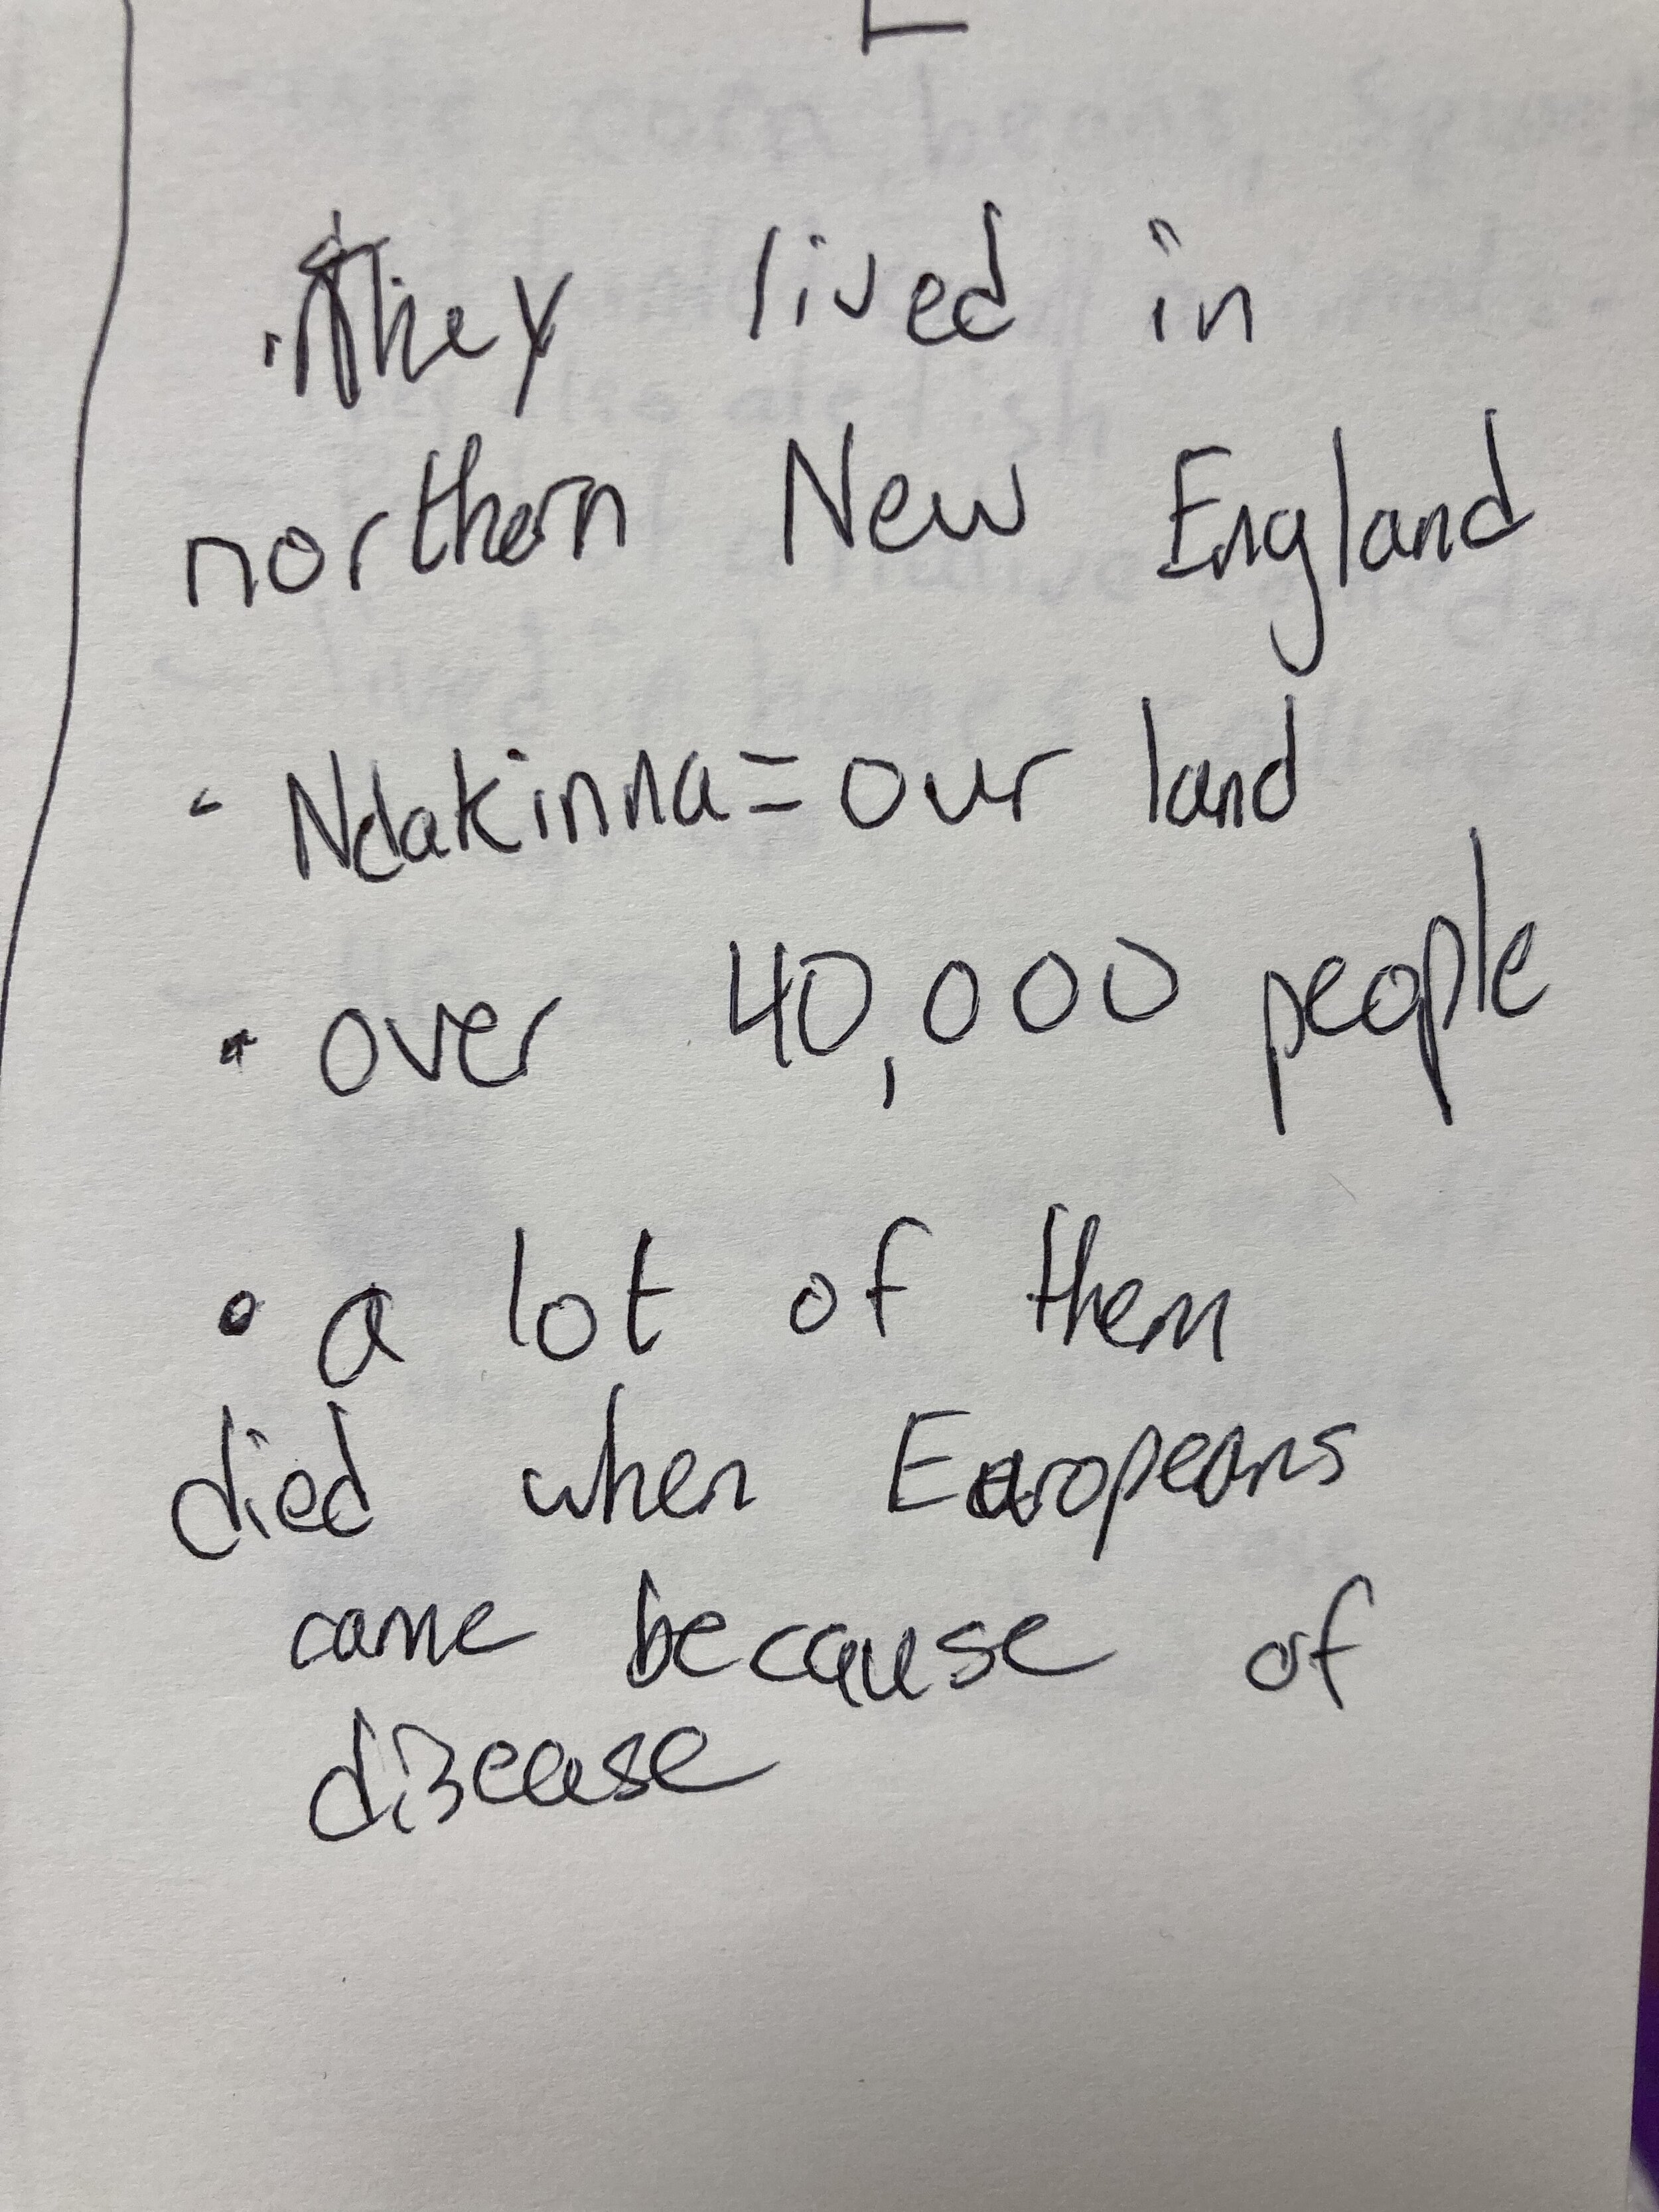 L
• they lived in
northern New England
• Ndakinna = our land
• over 40,000 people
• a lot of them
died when Europeans
came because of
disease